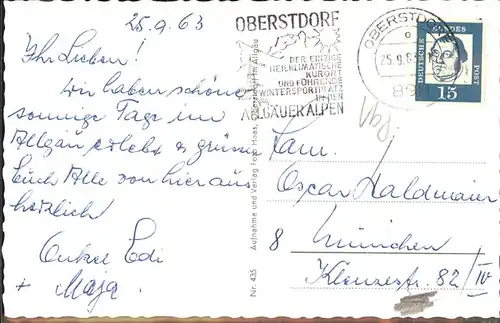 25.9.63
Ihr Lieben!
Wir haben schöne
sonnige Tage im
Allgäu erlebt & grüssen
Euch Alle von hier aus
herzlich
Onkel Edi
+ Maja.
OBERSTDORF
DER EINZIGE
HEILKLIMATISCHE
KURORT
UND FÜHRENDE
WINTERSPORTPLATZ
IN DEN
ALLGÄUER ALPEN
OBERSTDORF
25.9.63
DEUTSCHE BUNDESPOST
15
Fam.
Oscar Haldmann
8 München
Klenzestr. 82/IV
Nr. 435 Aufnahme und Verlag Foto Haas,